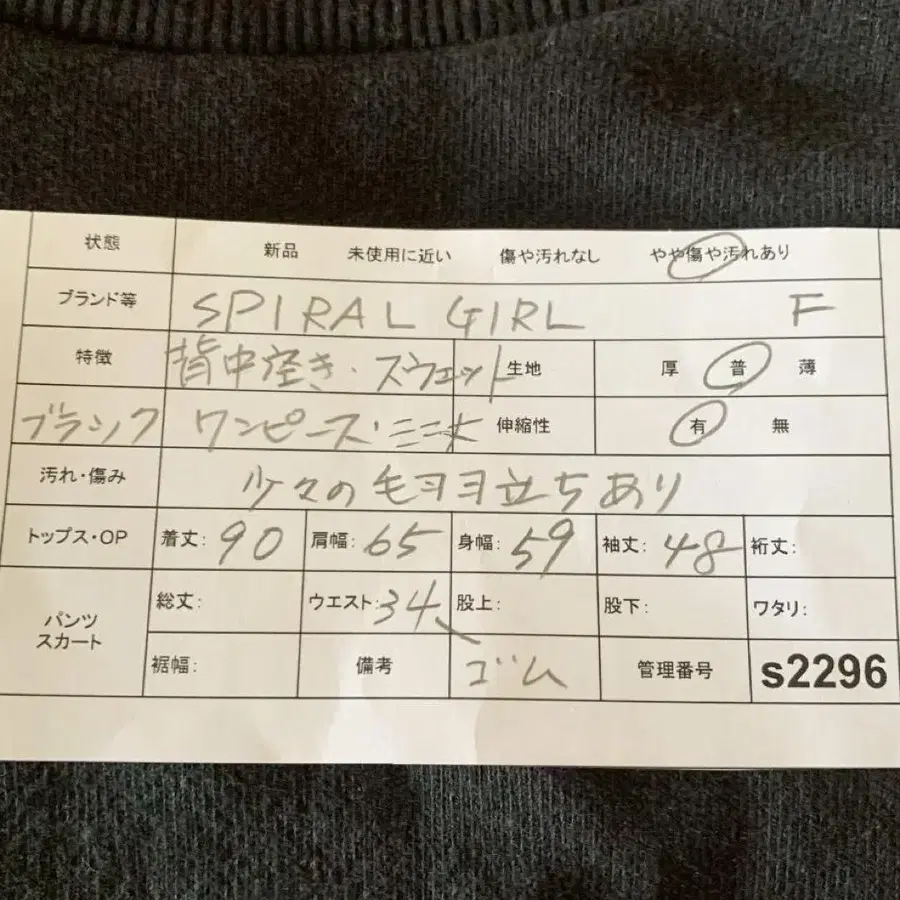 状態 新品 未使用に近い 傷や汚れなし やや傷や汚れあり
ブランド等 SPIRAL GIRL F
特徴 背中空き・スウェット 生地 厚 普 薄
ブラック ワンピース・ミニ丈 伸縮性 有 無
汚れ・傷み 少々の毛ヨヨ立ちあり
トップス・OP 着丈: 90 肩幅: 65 身幅: 59 袖丈: 48 裄丈:
パンツ
スカート
総丈: ウエスト: 34 股上: 股下: ワタリ:
裾幅: 備考 ゴム 管理番号 s2296